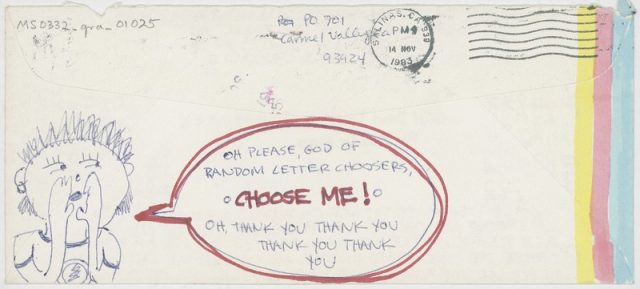 MS0332_gra_01025
PO 701
Carmel Valley, Ca.
93924
SALINAS, CA 939
PM
14 NOV
1983
OH PLEASE, GOD OF
RANDOM LETTER CHOOSERS,
CHOOSE ME!
OH, THANK YOU THANK YOU
THANK YOU THANK
YOU